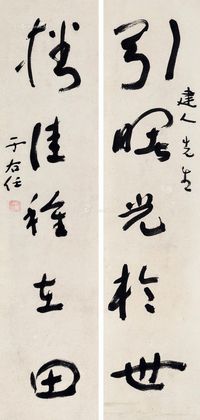 引曙光於世
建人先生
播佳種在田
于右任